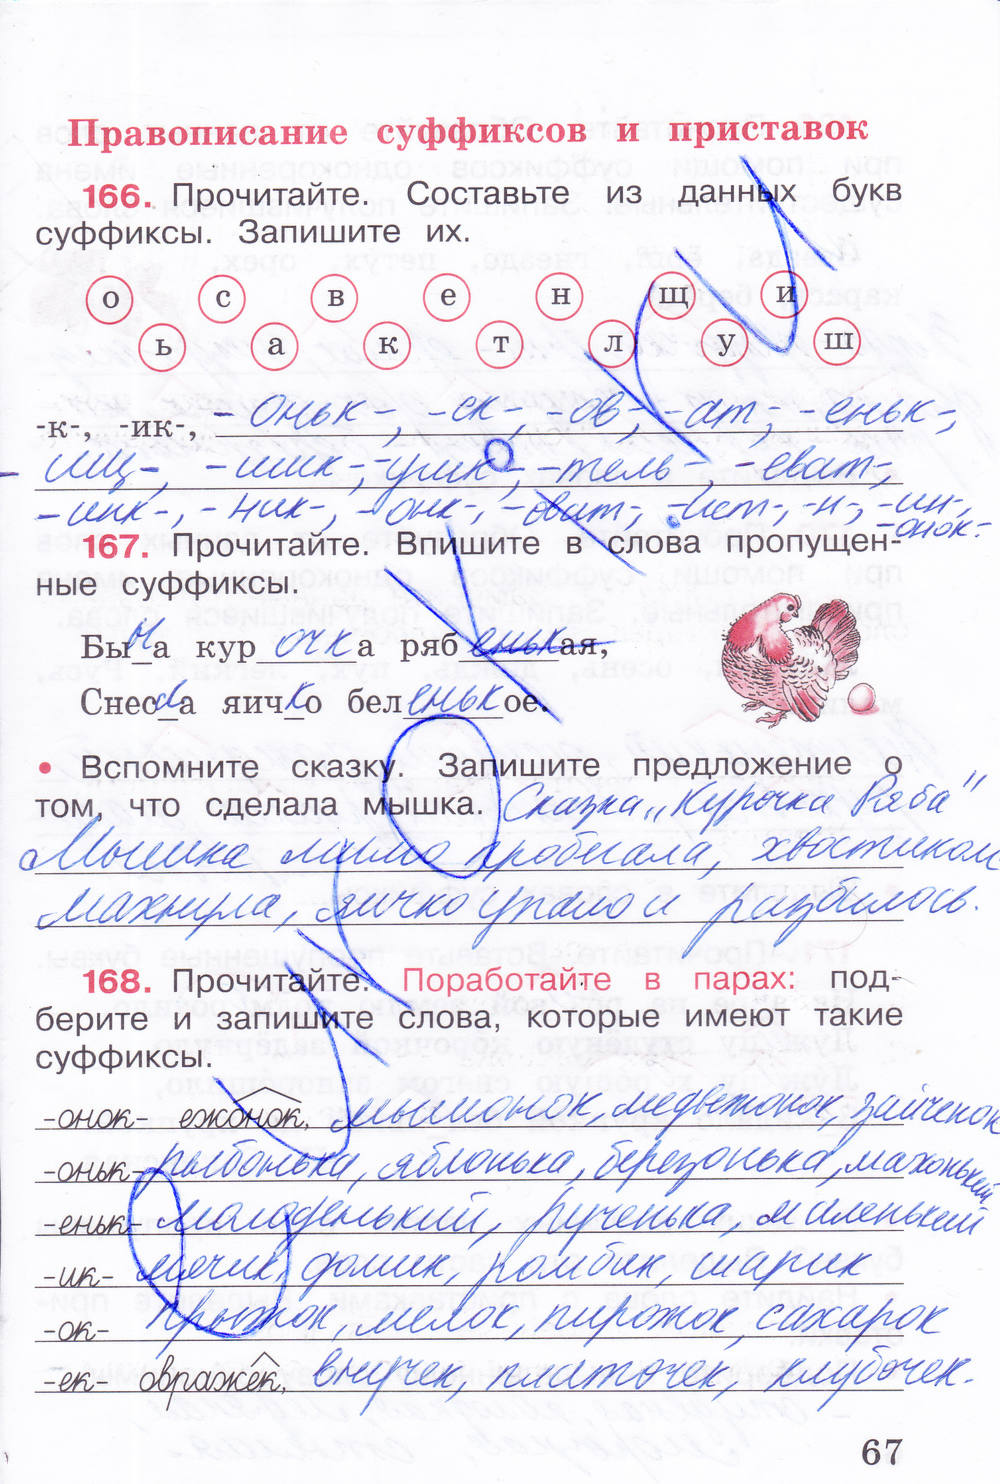 Правописание суффиксов и приставок
166. Прочитайте. Составьте из данных букв
суффиксы. Запишите их.
о с в е н щ и
ь а к т л у ш
-к-, -ик-, -оньк-, -ск-, -ов-, -ат-, -еньк-,
-ищ-, -шик-, -чик-, -тель- -еват-,
-инк-, -ник-, -онк-, -оват-, -ист-, -н-, -ин-,
-онок-
167. Прочитайте. Впишите в слова пропущен-
ные суффиксы.
Бы л а кур очк а ряб еньк ая,
Снес л а яич к о бел еньк ое.
• Вспомните сказку. Запишите предложение о
том, что сделала мышка. Сказка „Курочка Ряба"
Мышка мимо пробегала, хвостиком
махнула, яичко упало и разбилось.
168. Прочитайте. Поработайте в парах: под-
берите и запишите слова, которые имеют такие
суффиксы.
-онок- ежонок, мышонок, медвежонок, зайчонок
-оньк- рыбонька, яблонька, березонька, махонький
-еньк- молоденький, рученька, маленький
-ик- мячик, домик, ромбик, шарик
-ок- прыжок, мелок, пирожок, сахарок
-ек- овражек, внучек, платочек, клубочек.
67